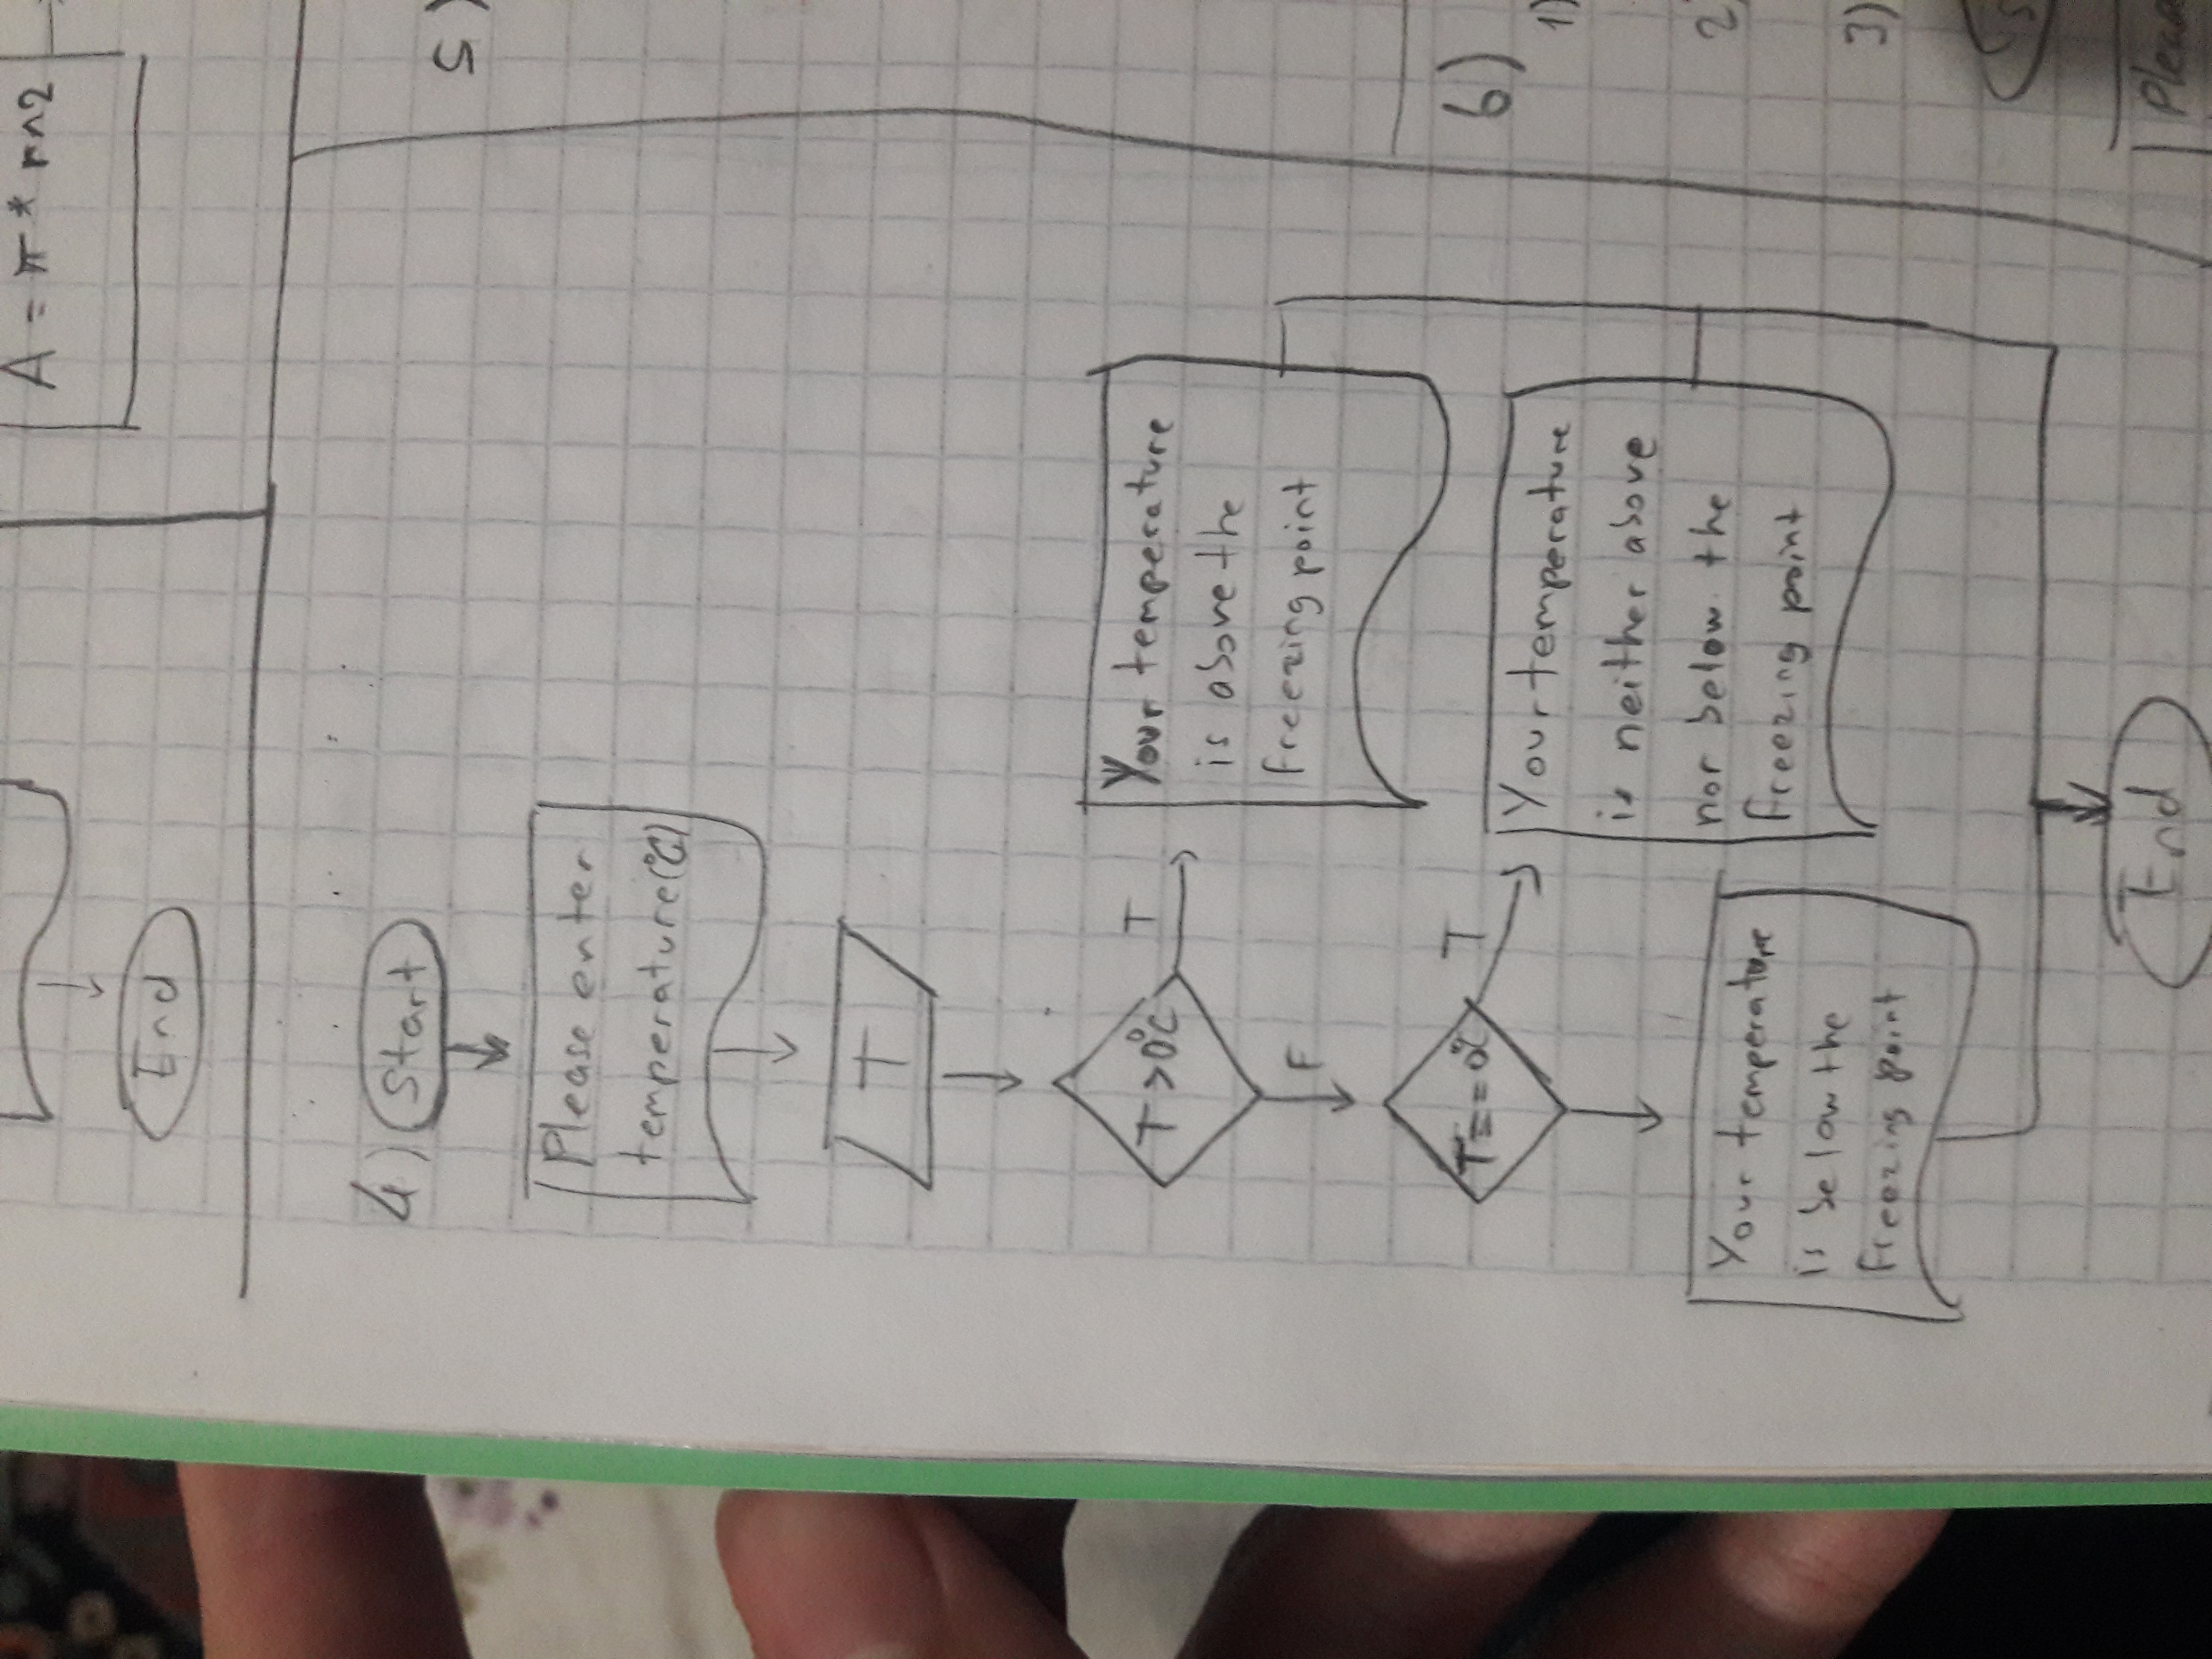 A = π * r^2
End
4) Start
5)
Please enter
temperature(°C)
T
T >0°C
T
Your temperature
is above the
freezing point
F
T == 0°C
T
6)
Your temperature
is neither above
nor below the
freezing point
1)
2)
3)
Your temperature
is below the
freezing point
End